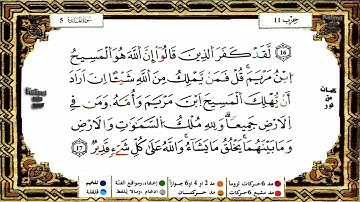 حزب 11
5
16 لَّقَدْ كَفَرَ ٱلَّذِينَ قَالُوٓا۟ إِنَّ ٱللَّهَ هُوَ ٱلْمَسِيحُ
ٱبْنُ مَرْيَمَ ۚ قُلْ فَمَن يَمْلِكُ مِنَ ٱللَّهِ شَيْـًٔا إِنْ أَرَادَ
أَن يُهْلِكَ ٱلْمَسِيحَ ٱبْنَ مَرْيَمَ وَأُمَّهُۥ وَمَن فِى
ٱلْأَرْضِ جَمِيعًا ۗ وَلِلَّهِ مُلْكُ ٱلسَّمَٰوَٰتِ وَٱلْأَرْضِ
وَمَا بَيْنَهُمَا ۚ يَخْلُقُ مَا يَشَآءُ ۚ وَٱللَّهُ عَلَىٰ كُلِّ شَىْءٍ قَدِيرٌ 17
مد 6 حركات لزوما مد 2 او 4 او 6 جوازا إخفاء، ومواقع الغنة تفخيم
حركتان إدغام، وما لا يلفظ قلقلة